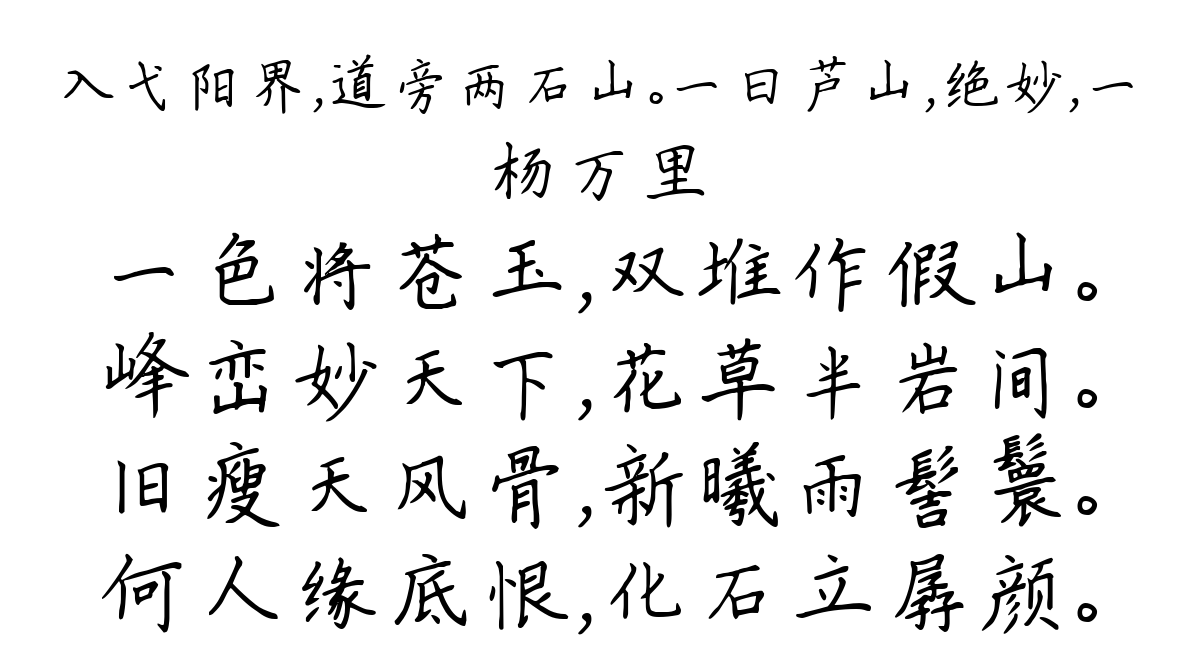 入弋阳界,道旁两石山。一曰芦山,绝妙,一
杨万里
一色将苍玉,双堆作假山。
峰峦妙天下,花草半岩间。
旧瘦天风骨,新曦雨髻鬟。
何人缘底恨,化石立孱颜。